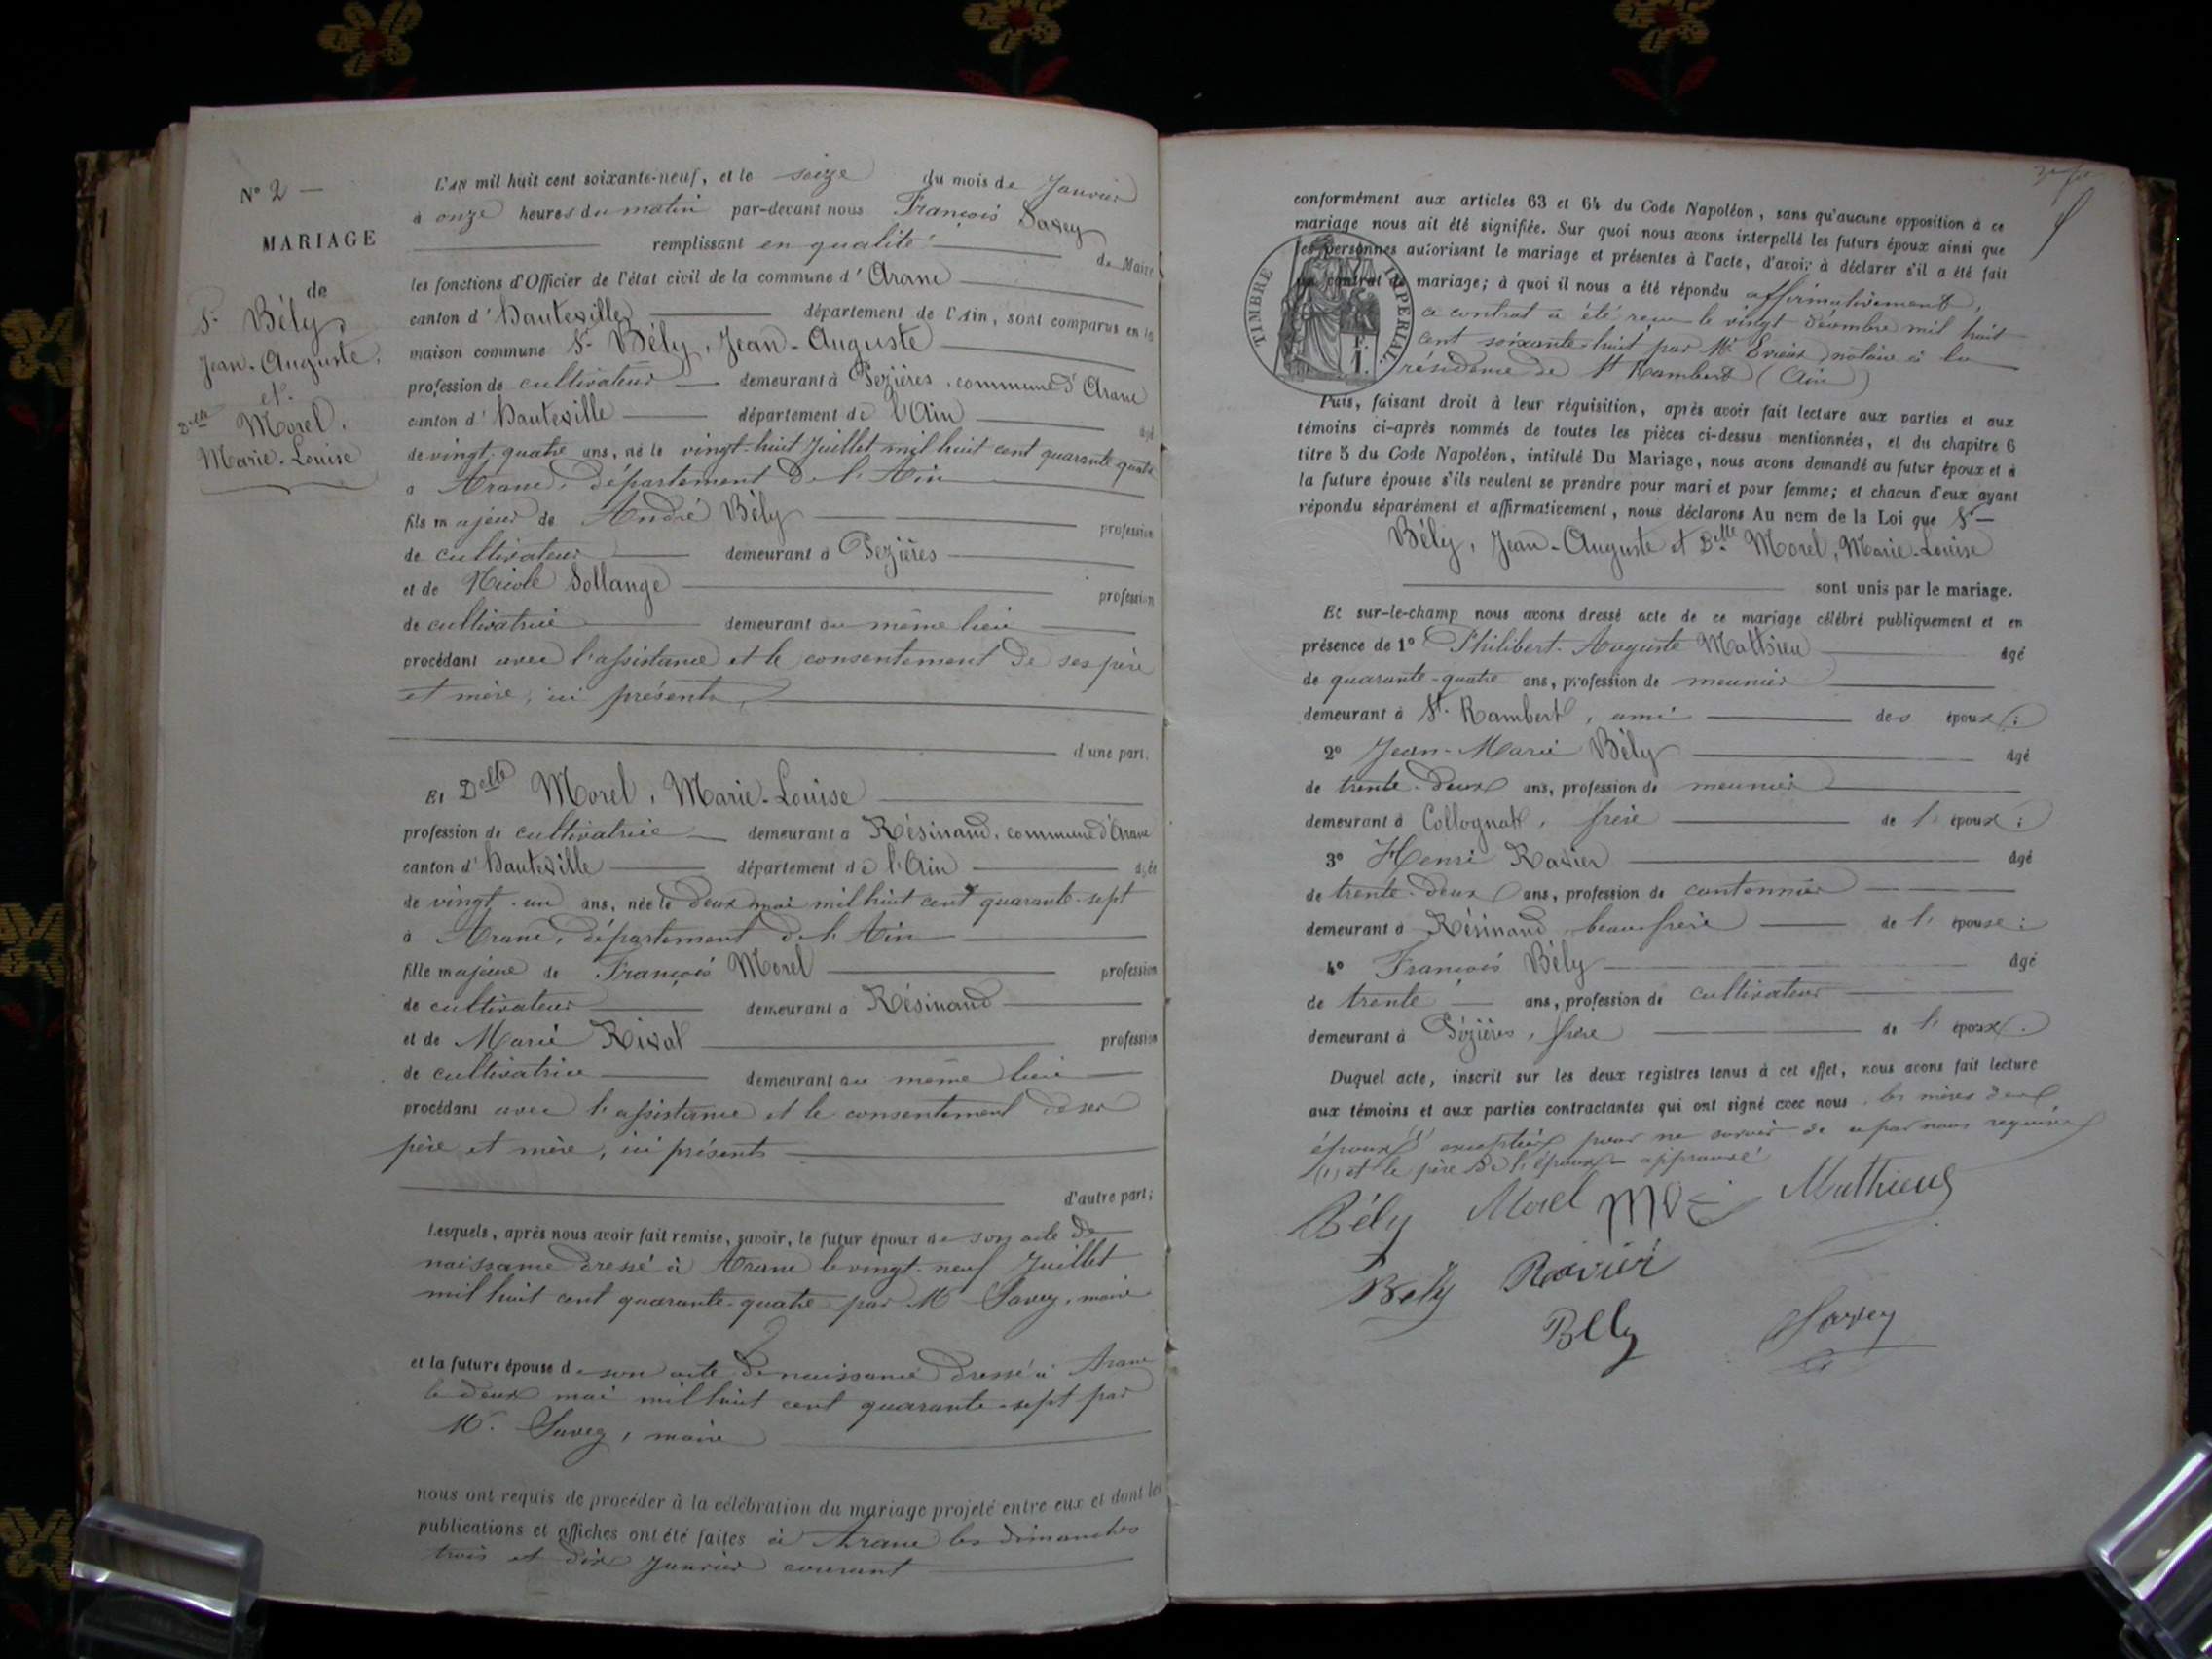 N° 2 —
MARIAGE
de
Sr Bély,
Jean-Auguste,
et
Delle Morel,
Marie-Louise
L'AN mil huit cent soixante-neuf, et le seize du mois de Janvier
à onze heures du matin par-devant nous François Savey
remplissant en qualité de Maire
les fonctions d'Officier de l'état civil de la commune d'Aranc
canton d'hauteville département de l'Ain, sont comparus en la
maison commune Sr Bély, Jean-Auguste
profession de cultivateur demeurant à Pezières, commune d'Aranc
canton d'hauteville département de l'Ain âgé
de vingt-quatre ans, né le vingt-huit Juillet mil huit cent quarante quatre
à Aranc, département de l'Ain
fils majeur de André Bély profession
de cultivateur demeurant à Pezières
et de Nicole Sollange profession
de cultivatrice demeurant au même lieu
procédant avec l'assistance et le consentement de ses père
et mère, ici présents,
d'une part.
Et Delle Morel, Marie-Louise
profession de cultivatrice demeurant à Résinand, commune d'Aranc
canton d'hauteville département de l'Ain âgée
de vingt-un ans, née le deux mai mil huit cent quarante-sept
à Aranc, département de l'Ain
fille majeure de François Morel profession
de cultivateur demeurant à Résinand
et de Marie Rival profession
de cultivatrice demeurant au même lieu
procédant avec l'assistance et le consentement de ses
père et mère, ici présents
d'autre part;
Lesquels, après nous avoir fait remise, savoir, le futur époux de son acte de
naissance dressé à Aranc le vingt-neuf Juillet
mil huit cent quarante-quatre par Mr Savey, maire
et la future épouse de son acte de naissance dressé à Aranc
le deux mai mil huit cent quarante-sept par
Mr. Savey, maire
nous ont requis de procéder à la célébration du mariage projeté entre eux et dont les
publications et affiches ont été faites à Aranc les dimanches
trois et dix Janvier courant
conformément aux articles 63 et 64 du Code Napoléon, sans qu'aucune opposition à ce
mariage nous ait été signifiée. Sur quoi nous avons interpellé les futurs époux ainsi que
les personnes autorisant le mariage et présentes à l'acte, d'avoir à déclarer s'il a été fait
un contrat de mariage; à quoi il nous a été répondu affirmativement,
ce contrat a été reçu le vingt décembre mil huit
cent soixante-huit par Me notaire à la
résidence de St Rambert (Ain)
TIMBRE IMPERIAL
1 F.
Puis, faisant droit à leur réquisition, après avoir fait lecture aux parties et aux
témoins ci-après nommés de toutes les pièces ci-dessus mentionnées, et du chapitre 6
titre 5 du Code Napoléon, intitulé Du Mariage, nous avons demandé au futur époux et à
la future épouse s'ils veulent se prendre pour mari et pour femme; et chacun d'eux ayant
répondu séparément et affirmativement, nous déclarons Au nom de la Loi que Sr
Bély, Jean-Auguste et Delle Morel, Marie-Louise
sont unis par le mariage.
Et sur-le-champ nous avons dressé acte de ce mariage célébré publiquement et en
présence de 1° Philibert-Auguste Mathieu âgé
de quarante-quatre ans, profession de meunier
demeurant à St. Rambert, ami des époux;
2° Jean-Marie Bély âgé
de trente-deux ans, profession de meunier
demeurant à Collognat, frère de l'époux;
3° Henri Ravier âgé
de trente-deux ans, profession de cantonnier
demeurant à Résinand, beau-frère de l'épouse;
4° François Bély âgé
de trente ans, profession de cultivateur
demeurant à Pézières, frère de l'époux.
Duquel acte, inscrit sur les deux registres tenus à cet effet, nous avons fait lecture
aux témoins et aux parties contractantes qui ont signé avec nous, les mères des
époux exceptées pour ne savoir de ce par nous requises
(1) et le père de l'époux approuvé
Bély Morel Mathieu
Bély Ravier
Bély Savey